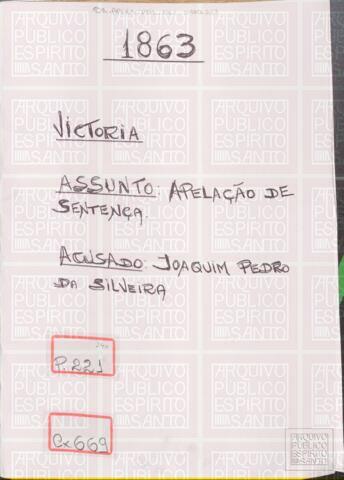 1863
VICTORIA
ASSUNTO: APELAÇÃO DE
SENTENÇA.
ACUSADO: JOAQUIM PEDRO
DA SILVEIRA
P. 221
Cx 669
ARQUIVO
PÚBLICO
ESPÍRITO
SANTO